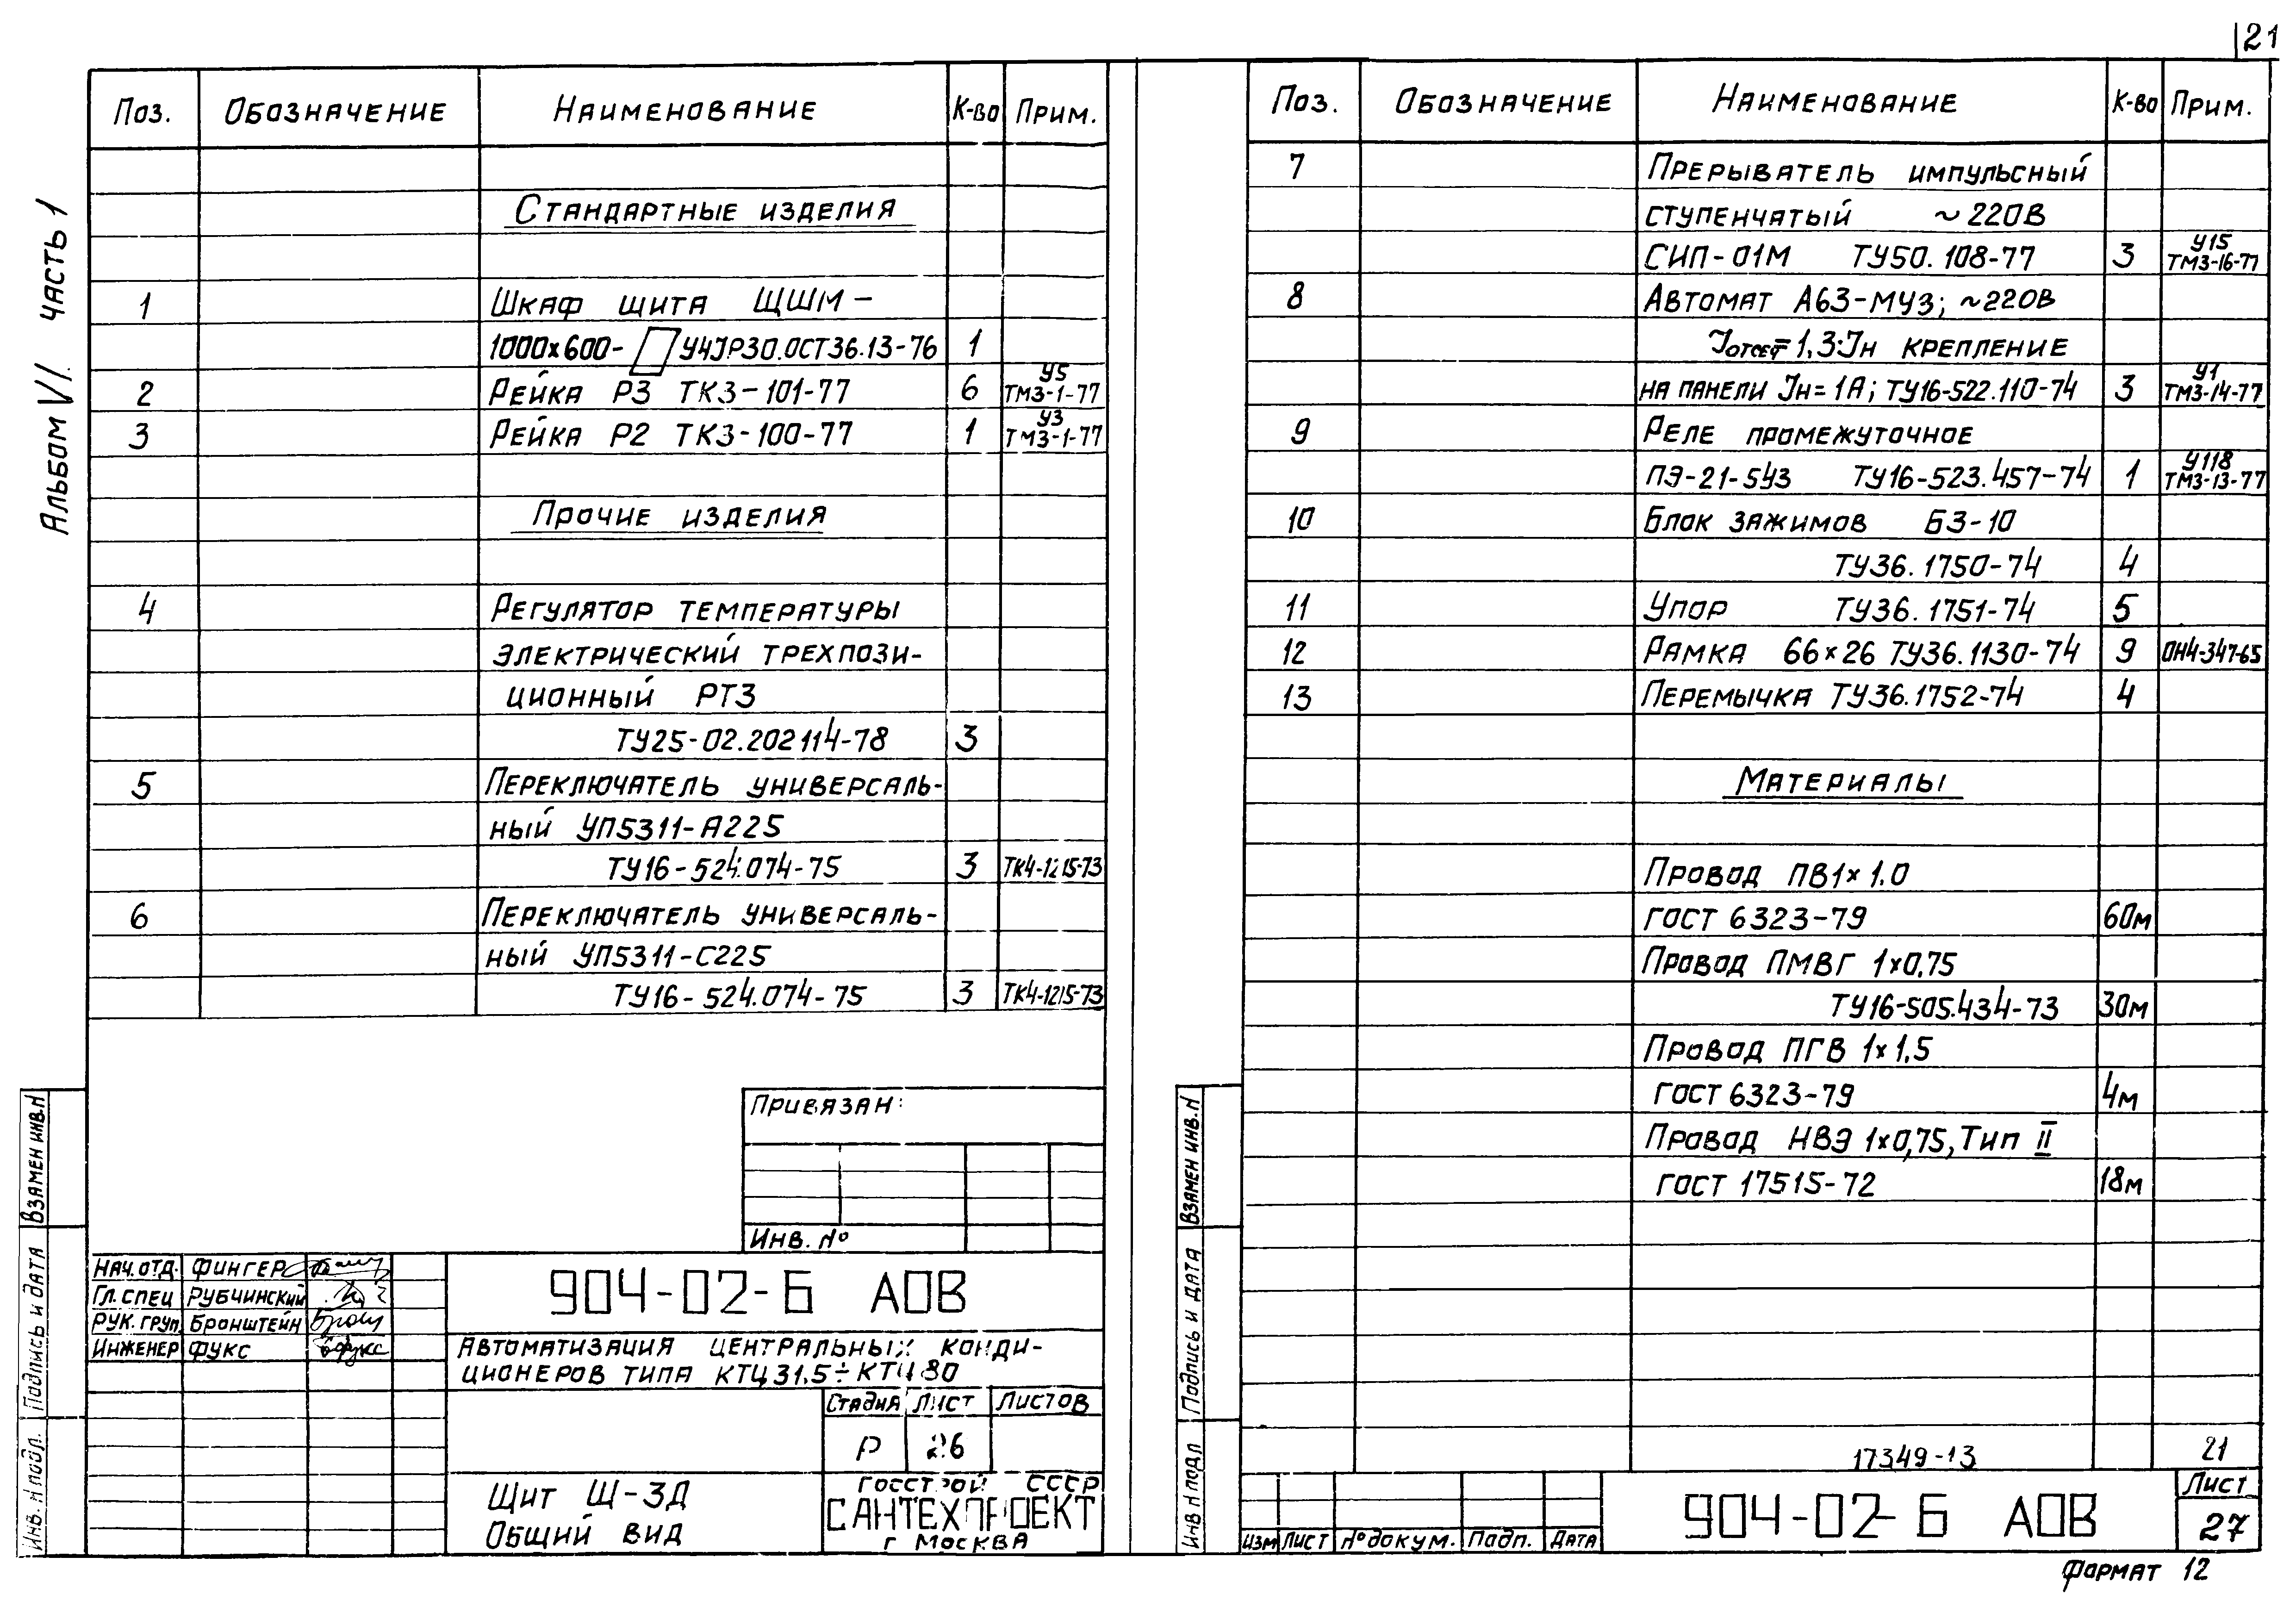 21
Альбом VI. часть 1
Поз. Обозначение Наименование К-во Прим.
Стандартные изделия
1 Шкаф щита ЩШМ-
1000х600- У4JP30.ОСТ36.13-76 1
2 Рейка Р3 ТК3-101-77 6 У5 ТМ3-1-77
3 Рейка Р2 ТК3-100-77 1 У3 ТМ3-1-77
Прочие изделия
4 Регулятор температуры
электрический трехпози-
ционный РТ3
ТУ25-02.202114-78 3
5 Переключатель универсаль-
ный УП5311-А225
ТУ16-524.074-75 3 ТК4-1215-73
6 Переключатель универсаль-
ный УП5311-С225
ТУ16-524.074-75 3 ТК4-1215-73
Привязан:
Инв. №
Взамен инв. N
Подпись и дата
Инв. N подл.
Нач. отд. Фингер
Гл. спец Рубчинский
Рук. груп. Бронштейн
Инженер Фукс
904-02-Б АОВ
Автоматизация центральных конди-
ционеров типа КТЦ31.5÷КТЦ80
Стадия Лист Листов
Р 26
Щит Щ-3Д
Общий вид
Госстрой СССР
САНТЕХПРОЕКТ
г Москва
Поз. Обозначение Наименование К-во Прим.
7 Прерыватель импульсный
ступенчатый ~220В
СИП-01М ТУ50.108-77 3 У15 ТМ3-16-77
8 Автомат А63-МУ3; ~220В
Jотсеч=1,3·Jн крепление
на панели Jн=1А; ТУ16-522.110-74 3 У1 ТМ3-14-77
9 Реле промежуточное
ПЭ-21-5У3 ТУ16-523.457-74 1 У118 ТМ3-13-77
10 Блок зажимов БЗ-10
ТУ36.1750-74 4
11 Упор ТУ36.1751-74 5
12 Рамка 66×26 ТУ36.1130-74 9 ОН4-347-65
13 Перемычка ТУ36.1752-74 4
Материалы
Провод ПВ1×1.0
ГОСТ 6323-79 60м
Провод ПМВГ 1×0.75
ТУ16-505.434-73 30м
Провод ПГВ 1×1.5
ГОСТ 6323-79 4м
Провод НВЭ 1×0,75, Тип II
ГОСТ 17515-72 18м
17349-13 21
Взамен инв. N
Подпись и дата
Инв N подл
Изм Лист № докум. Подп. Дата
904-02-Б АОВ
Лист
27
Формат 12